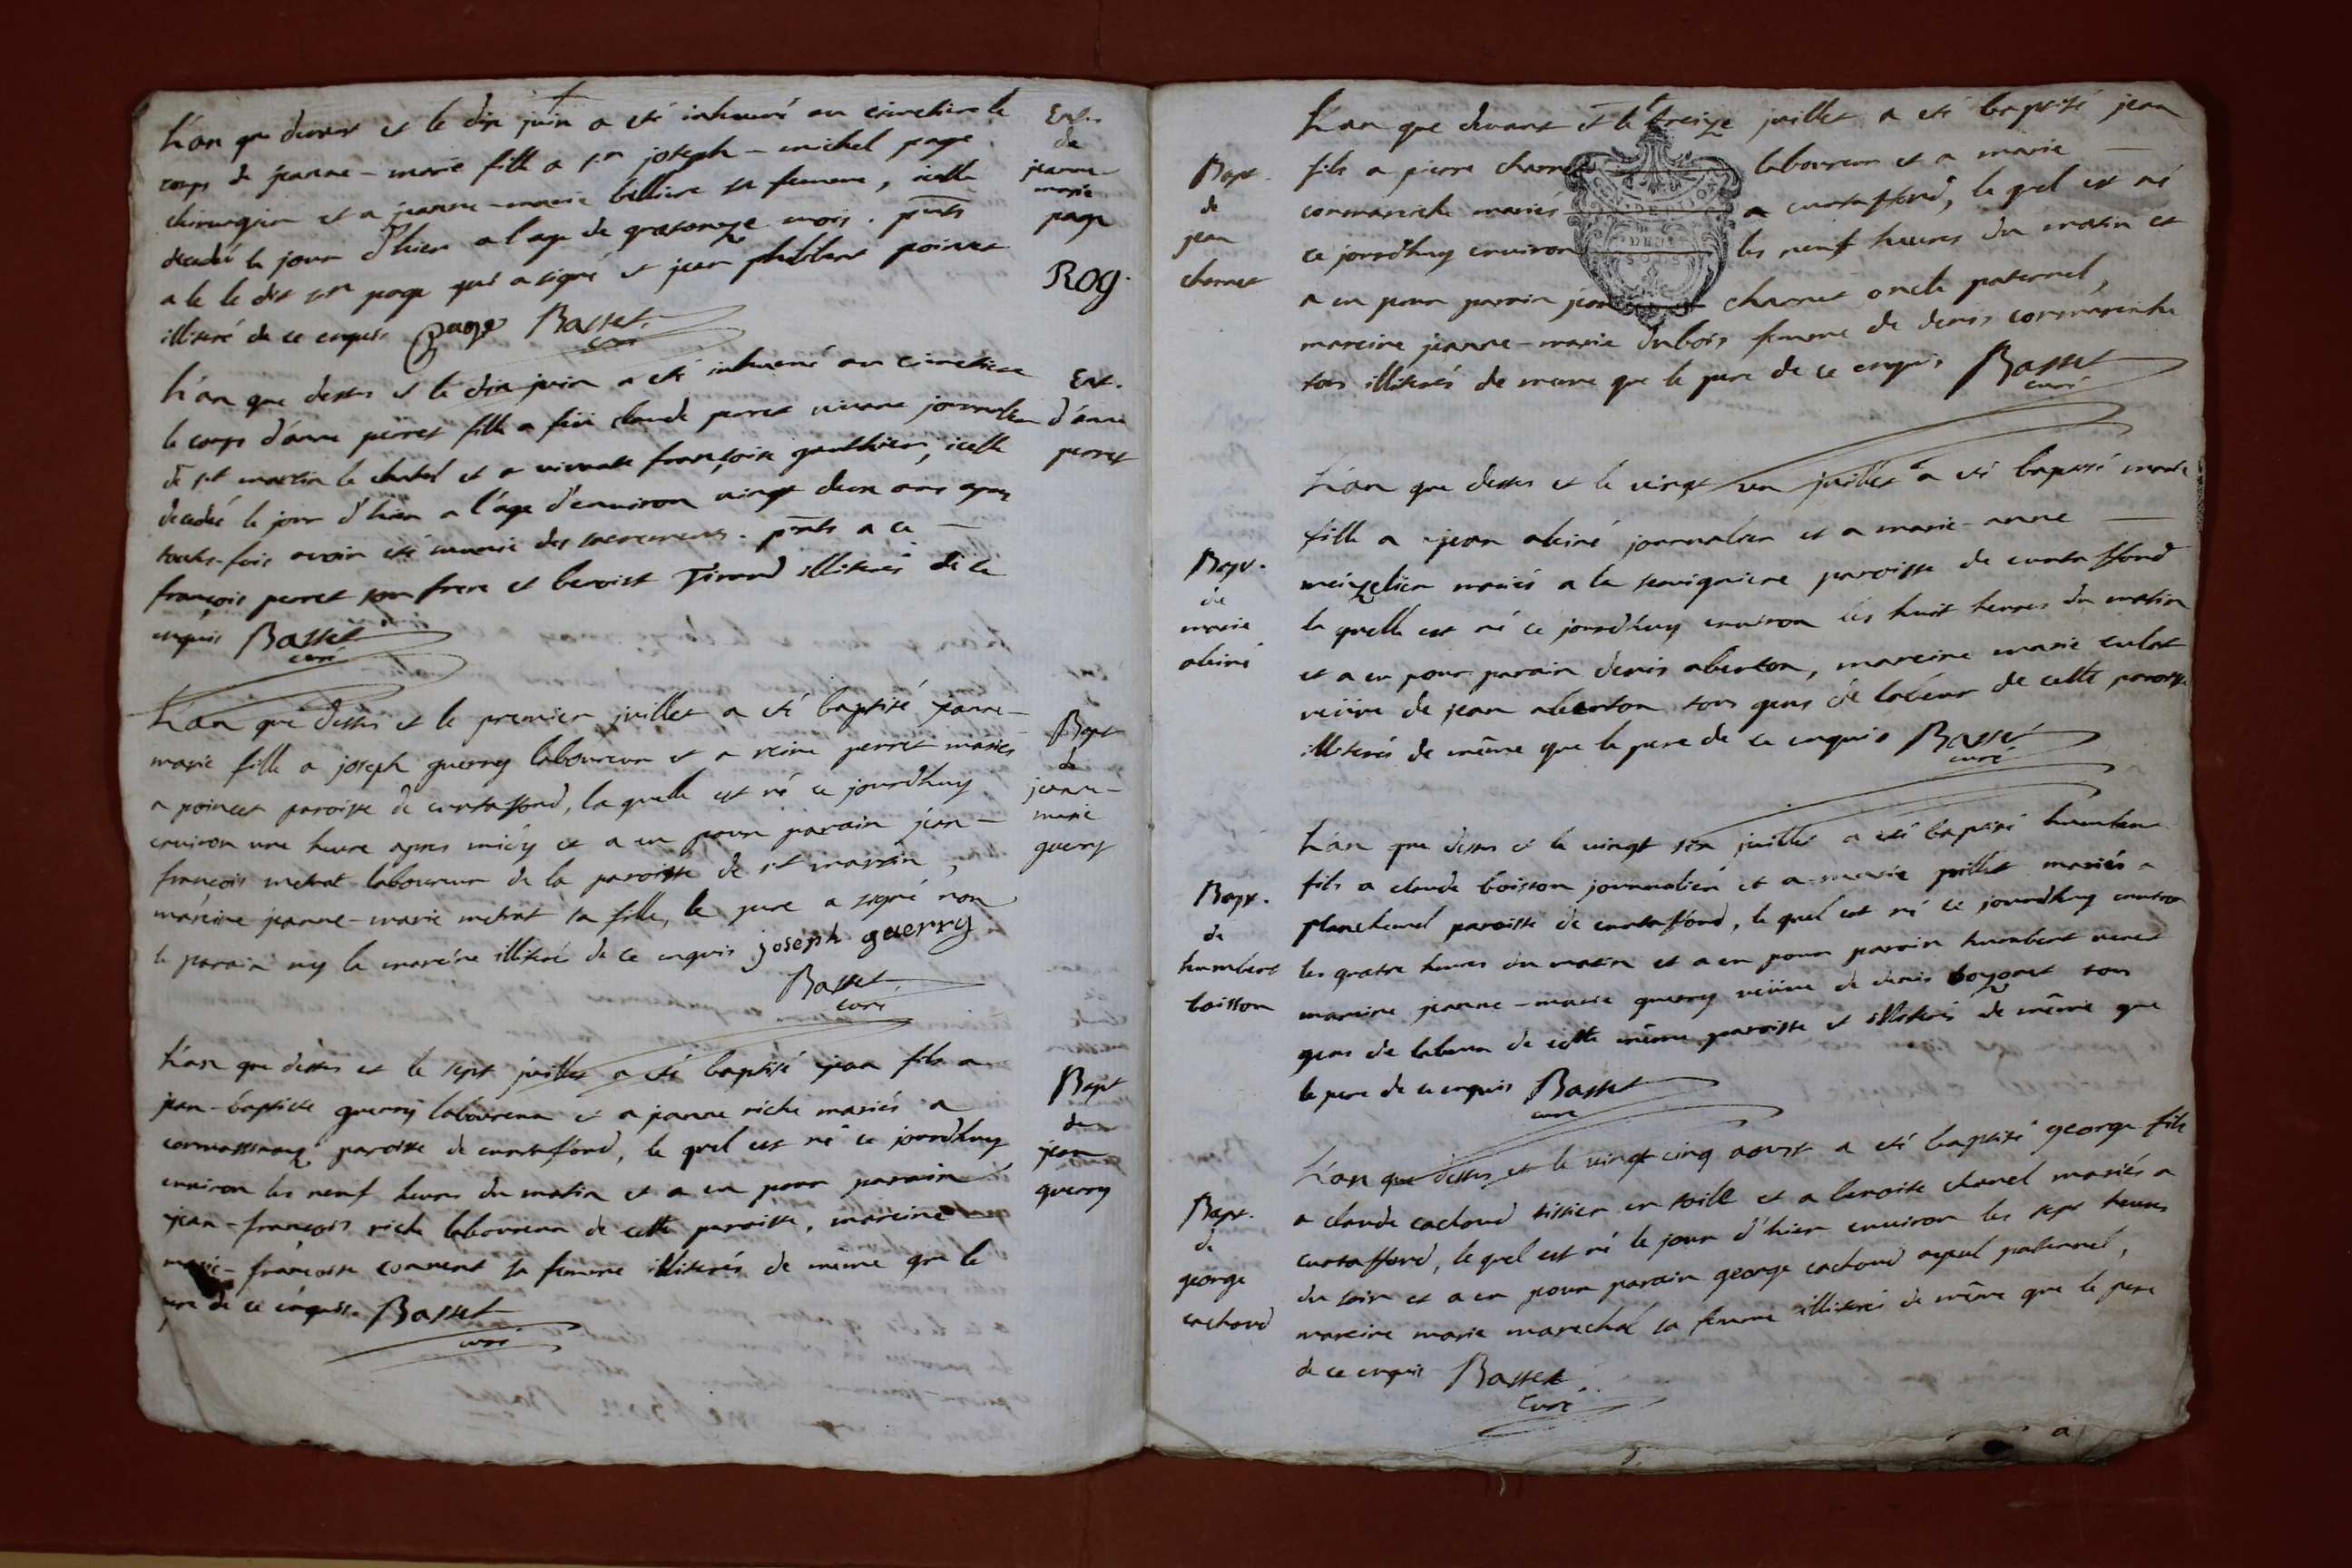 L'an que devant et le dix juin a eté inhumé au cimetiere le
corps de jeanne-marie fille a sr joseph-michel page
chirurgien et a jeanne-marie belliere sa femme, icelle
decedée le jour d'hier a l'age de quatorze mois. pnts
a ce le dit sr page qui a signé et jean philibert poincet
illiteré de ce enquis page Basset
curé
Ent.
de
jeanne-
marie
page
Rog.
L'an que dessus et le dix juin a eté inhumé au cimetiere
le corps d'anne perret fille a feu claude perret vivant journalier
de st martin le chatel et a vivante françoise gauthier, icelle
decedée le jour d'hier a l'age d'environ vingt deux ans apres
toutes-fois avoir eté munie des sacrements. pnts a ce
françois perret son frere et benoist Tirand illiterés de ce
enquis Basset
curé
Ent.
d'anne
perret
L'an que dessus et le premier juillet a eté baptisé jeanne-
marie fille a joseph guerry laboureur et a reine perret mariés
a poincet paroisse de curtaffond, la quelle est né ce jourdhuy
environ une heure apres midy et a eu pour parain jean-
françois metrat laboureur de la paroisse de st martin,
mareine jeanne-marie metrat sa fille, le pere a signé non
le parain ny la mareine illiteré de ce enquis joseph guerry
Basset
curé
Bapt
de
jeanne-
marie
guerry
L'an que dessus et le sept juillet a eté baptisé jean fils a
jean-baptiste guerry laboureur et a jeanne riche mariés a
cormassinouz paroisse de curtafond, le quel est né ce jourdhuy
environ les neuf heures du matin et a eu pour parain
jean-françois riche laboureur de cette paroisse, mareine
marie-françoise convent sa femme illiterés de meme que le
pere de ce enquis. Basset
curé
Bapt
de
jean
guerry
L'an que devant et le treize juillet a eté baptisé jean
fils a pierre charnet laboureur et a marie
cormareiche mariés a curtaffond, le quel est né
ce jourdhuy environ les neuf heures du matin et
a eu pour parain jean charnet oncle paternel,
mareine jeanne-marie dubois femme de denis cormareiche
tous illiterés de meme que le pere de ce enquis Basset
curé
Bapt.
de
jean
charnet
L'an que dessus et le vingt un juillet a eté baptisé marie
fille a jean aleiné journalier et a marie-anne
meizelier mariés a la servigniere paroisse de curtaffond
la quelle est né ce jourdhuy environ les huit heures du matin
et a eu pour parain denis aberton, mareine marie culat
veüve de jean aberton tous gens de labeur de cette paroisse
illiterés de même que le pere de ce enquis Basset
curé
Bapt.
de
marie
aleiné
L'an que dessus et le vingt six juillet a eté baptisé humbert
fils a claude boisson journalier et a marie pillet mariés a
planchenel paroisse de curtaffond, le quel est né ce jourdhuy environ
les quatre heures du matin et a eu pour parain humbert veret
mareine jeanne-marie guerry veüve de denis bozonet tous
gens de labeur de cette même paroisse et illiterés de même que
le pere de ce enquis Basset
curé
Bapt.
de
humbert
boisson
L'an que dessus et le vingt cinq aoust a eté baptisé george fils
a claude cachoud tissier en toille et a benoite chanel mariés a
curtaffond, le quel est né le jour d'hier environ les sept heures
du soir et a eu pour parain george cachoud ayeul paternel,
mareine marie marechal sa femme illiterés de même que le pere
de ce enquis Basset
curé
Bapt.
de
george
cachoud